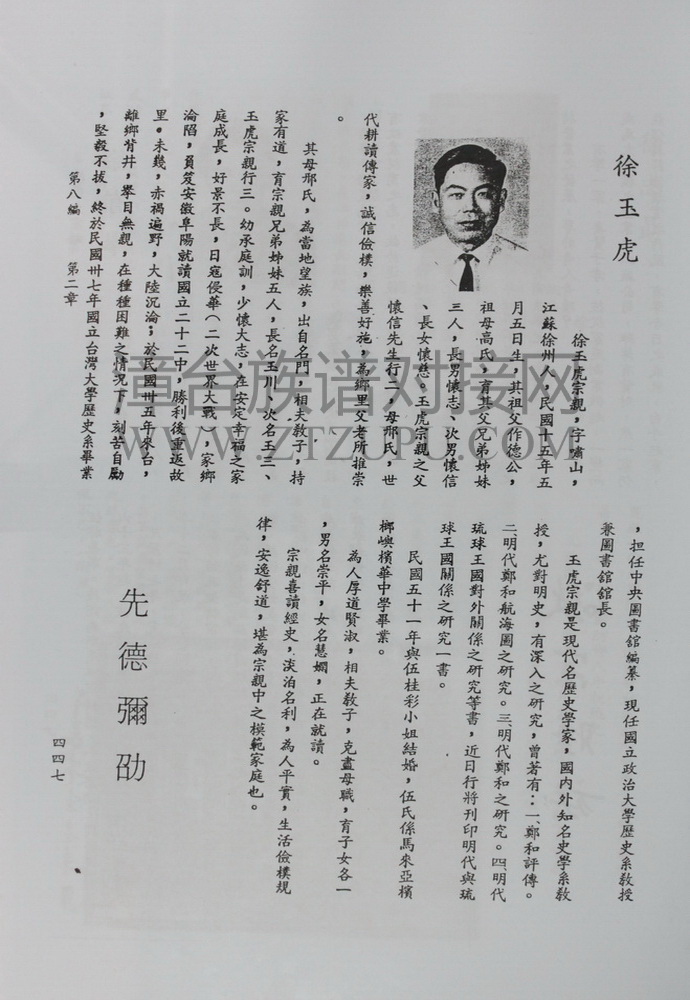 徐玉虎
徐玉虎宗親，字嘯山，
江蘇徐州人，民國十五年五
月五日生，其祖父作德公，
祖母高氏，育其父兄弟姊妹
三人，長男懷志、次男懷信
、長女懷慈。玉虎宗親之父
懷信先生行二，母邢氏，世
代耕讀傳家，誠信儉樸，樂善好施，為鄉里父老所推崇
。
其母邢氏，為當地望族，出自名門，相夫教子，持
家有道，育宗親兄弟姊妹五人，長名玉川、次名玉三、
玉虎宗親行三。幼承庭訓，少懷大志，在安定幸福之家
庭成長，好景不長，日寇侵華（二次世界大戰），家鄉
淪陷，負笈安徽阜陽就讀國立二十二中，勝利後重返故
里。未幾，赤禍遍野，大陸沉淪；於民國卅五年來台，
離鄉背井，舉目無親，在種種困難之情況下，刻苦自勵
，堅毅不拔，終於民國卅七年國立台灣大學歷史系畢業
第八編　第二章
，担任中央圖書舘編纂，現任國立政治大學歷史系教授
兼圖書舘舘長。
玉虎宗親是現代名歷史學家，國內外知名史學系教
授，尤對明史，有深入之研究，曾著有：一、鄭和評傳。
二、明代鄭和航海圖之研究。三、明代鄭和之研究。四、明代
琉球王國對外關係之研究等書，近日行將刊印明代與琉
球王國關係之研究一書。
民國五十一年與伍桂彩小姐結婚，伍氏係馬來亞檳
榔嶼檳華中學畢業。
為人厚道賢淑，相夫教子，克盡母職，育子女各一
，男名崇平，女名慧嫻，正在就讀。
宗親喜讀經史，淡泊名利，為人平實，生活儉樸規
律，安逸舒道，堪為宗親中之模範家庭也。
先德彌劭
四四七
漳台族谱对接网
WWW.ZTZUPU.COM